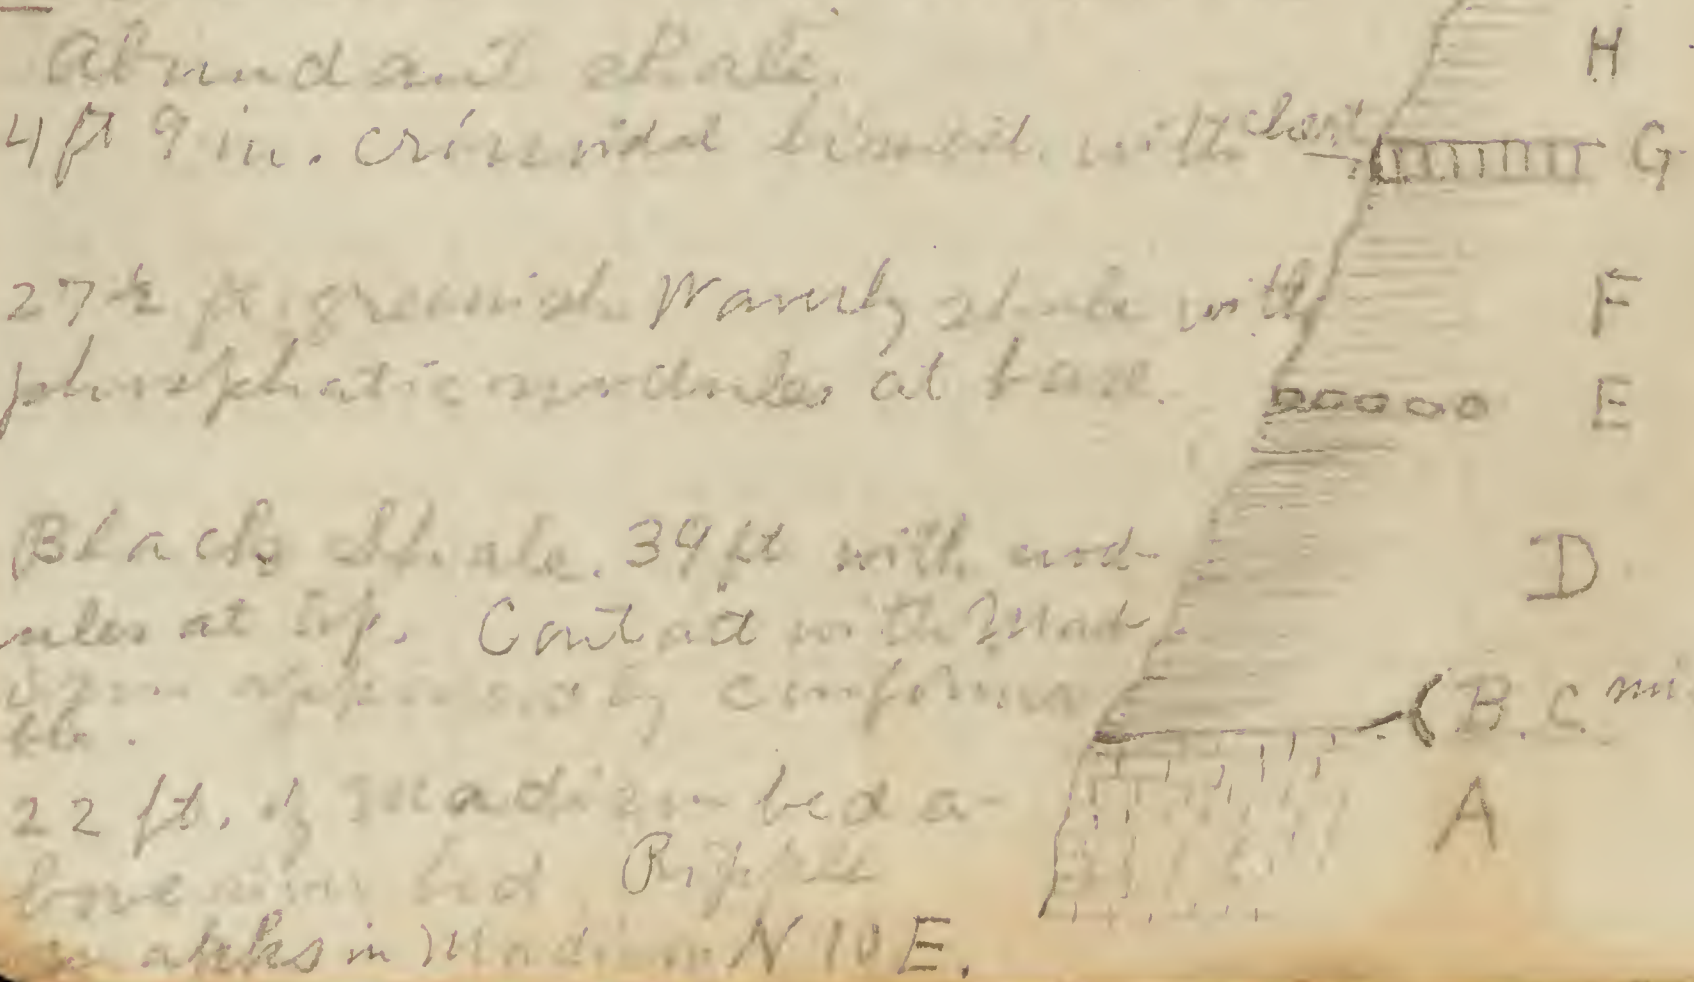 Abundant shale.
4 ft 9 in. crinoidal limest. with chert
H
G
27½ ft. greenish Waverly shale with
phosphatic nodules at base.
F
E
Black Shale. 39 ft with nod-
ules at top. Contact with Mad-
ison apparently conforma
ble.
D
B. C. mi
22 ft. of Madison bed a-
bove river bed. Ripple
marks in Madison N 10 E.
A